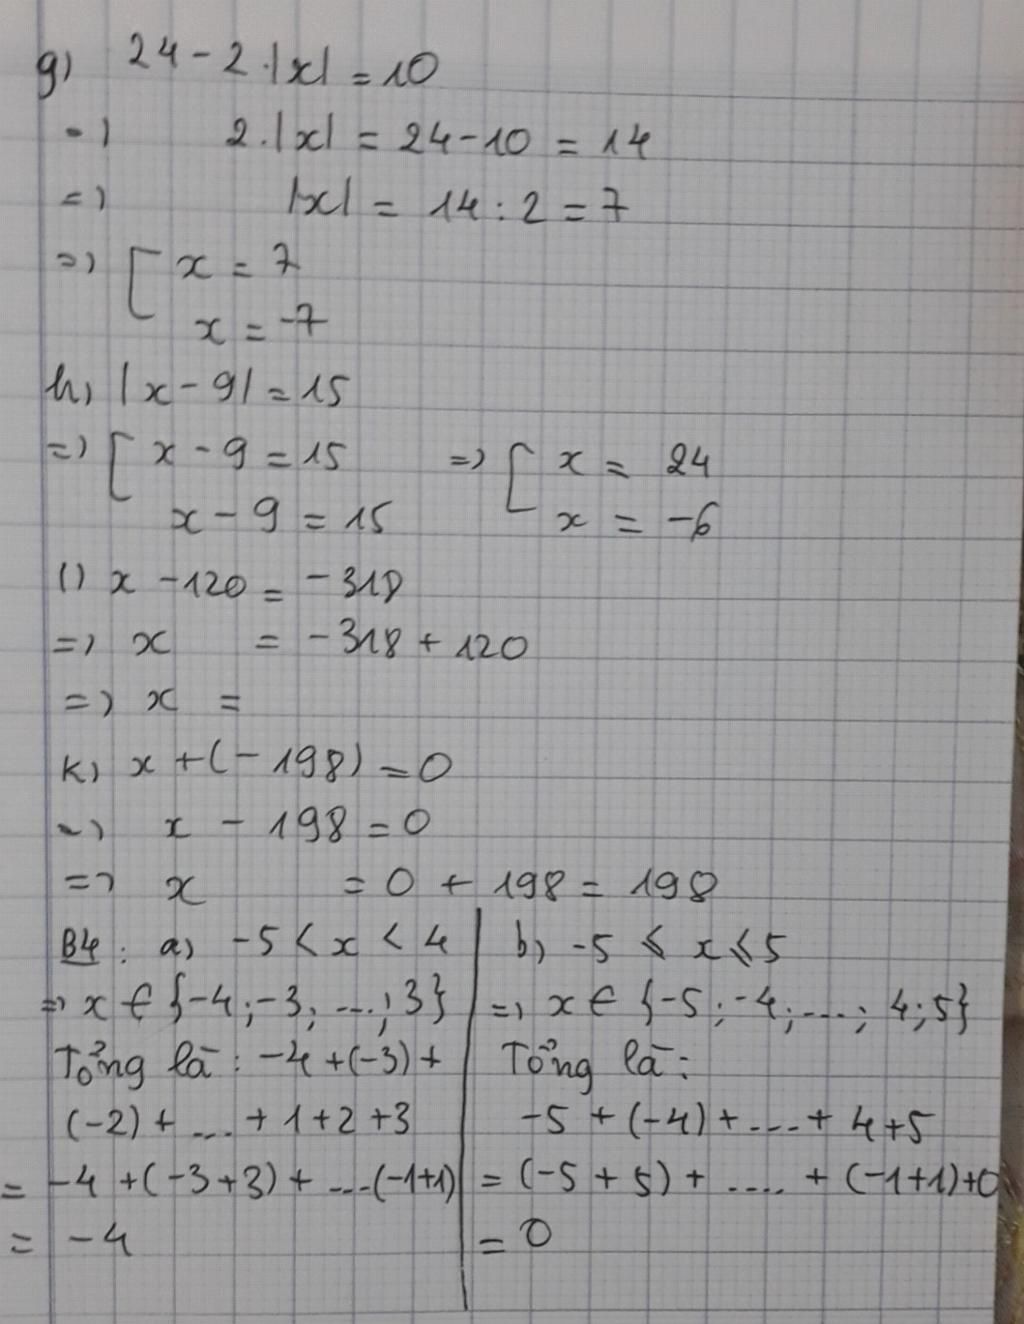 g) 24 - 2.|x| = 10
=) 2.|x| = 24-10 = 14
=) |x| = 14 : 2 = 7
=) [ x = 7
x = -7
h) |x - 9| = 15
=) [ x - 9 = 15 =) [ x = 24
x - 9 = 15 x = -6
i) x - 120 = -318
=) x = -318 + 120
=) x =
k) x + (-198) = 0
=) x - 198 = 0
=) x = 0 + 198 = 198
B4: a) -5 < x < 4
=) x ∈ {-4; -3; ...; 3}
Tổng là: -4 + (-3) +
(-2) + ... + 1 + 2 + 3
= -4 + (-3+3) + ...(-1+1)
= -4
b) -5 ⩽ x ⩽ 5
=) x ∈ {-5; -4; ...; 4; 5}
Tổng là:
-5 + (-4) + ... + 4+5
= (-5 + 5) + .... + (-1+1)+0
= 0